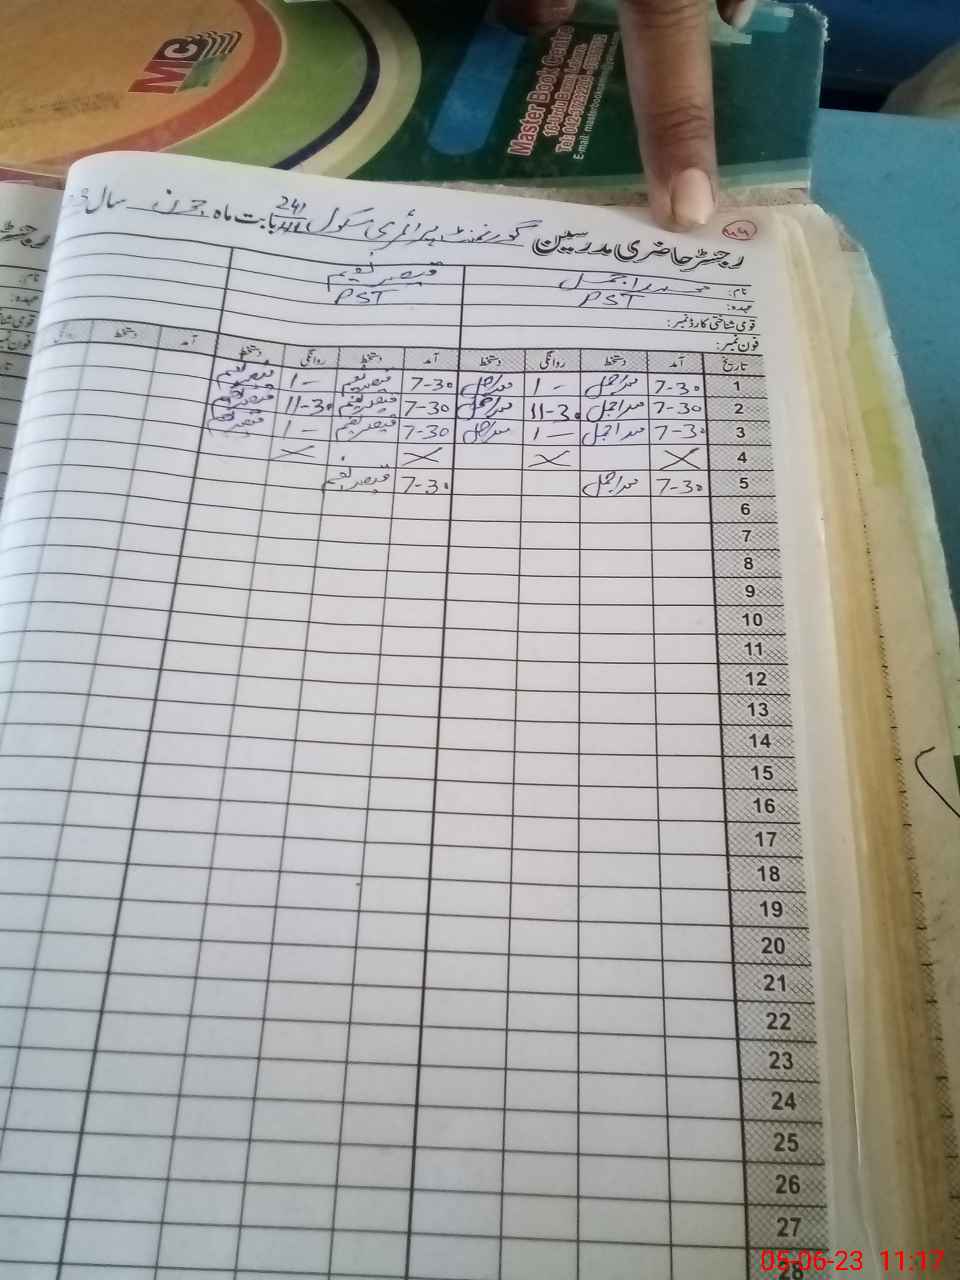 MC
Master Book Centre
10-Urdu Bazar Lahore.
رجسٹر حاضری مدرسین گورنمنٹ پرائمری سکول 241 بابت ماہ جون سال
نام: محمد اجمل قیصر نعیم
عہدہ: PST PST
قومی شناختی کارڈ نمبر:
فون نمبر:
تاریخ آمد دستخط روانگی دستخط آمد دستخط روانگی دستخط آمد دستخط روانگی
1 7-30 محمد اجمل 1 - محمد اجمل 7-30 قیصر نعیم 1 - قیصر نعیم
2 7-30 محمد اجمل 11-30 محمد اجمل 7-30 قیصر نعیم 11-30 قیصر نعیم
3 7-30 محمد اجمل 1 - محمد اجمل 7-30 قیصر نعیم 1 - قیصر نعیم
4 X X X X
5 7-30 محمد اجمل 7-30 قیصر نعیم
6
7
8
9
10
11
12
13
14
15
16
17
18
19
20
21
22
23
24
25
26
27
28
05-06-23 11:17